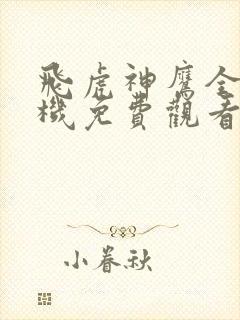 飛虎神鷹全
機免費觀看
小春秋